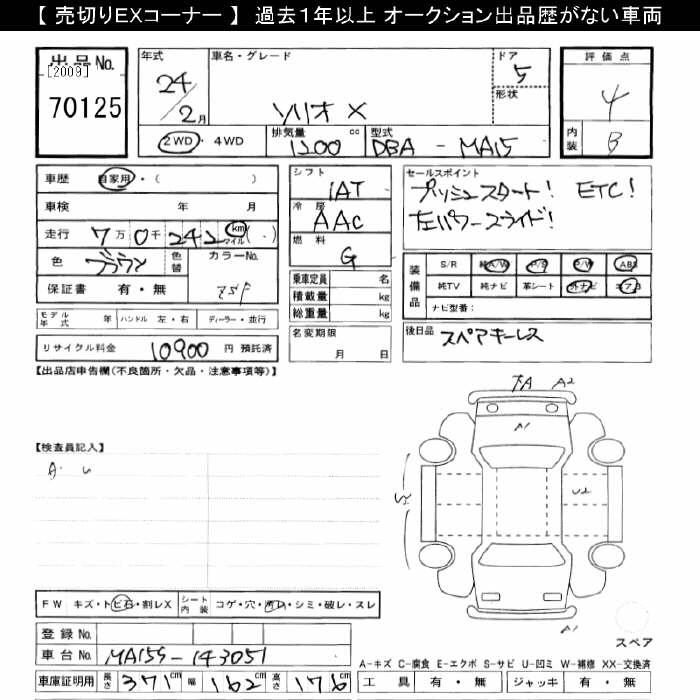 【 売切りEXコーナー 】 過去1年以上 オークション出品歴がない車両
出品No.
[2009]
70125
年式
24
2月
車名・グレード
ソリオ X
ドア
5
形状
評価点
4
内装
B
2WD・4WD
排気量
1200 cc
型式
DBA - MA15
車歴 自家用・( )
車検 年 月
走行 7万0千242 km マイル ( . )
色 ブラウン 色替 カラーNo.
ZSF
保証書 有・無
シフト
IAT
冷房
AAC
燃料
G
乗車定員 名
積載量 kg
総重量 kg
セールスポイント
プッシュスタート! ETC!
左パワースライド!
装備品
S/R 純A/W P/S P/W ABS
純TV 純ナビ 革シート 外ナビ エアB
ナビ型番:
モデル年式 年 ハンドル 左・右 ディーラー・並行
名変期限
月 日
後日品
スペアキーレス
リサイクル料金 10900 円 預託済
【出品店申告欄(不良箇所・欠品・注意事項等)】
下A A2
A1
【検査員記入】
U2
FW キズ・トビ石・割レX シート内装 コゲ・穴・汚レ・シミ・破レ・スレ
A1
スペア
登録No.
車台No. MA15S-143051
A-キズ C-腐食 E-エクボ S-サビ U-凹ミ W-補修 XX-交換済
車庫証明用 長さ 371cm 幅 162cm 高さ 176cm
工具 有・無 ジャッキ 有・無